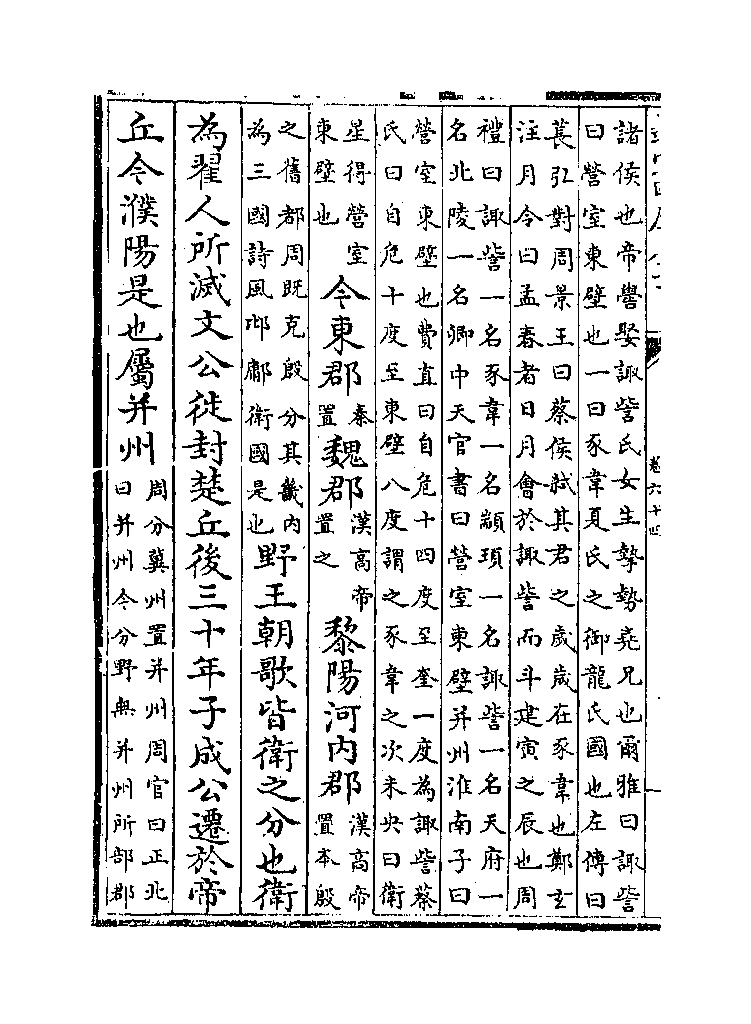 諸侯也帝嚳娶諏訾氏女生摯勢堯兄也爾雅曰諏訾
曰營室東壁也一曰豕韋夏氏之御龍氏國也左傳曰
萇弘對周景王曰蔡侯弑其君之歲歲在豕韋也鄭玄
注月令曰孟春者日月會於諏訾而斗建寅之辰也周
禮曰諏訾一名豕韋一名顓頊一名諏訾一名天府一
名北陵一名卿中天官書曰營室東壁并州淮南子曰
營室東壁也費直曰自危十四度至奎一度為諏訾蔡
氏曰自危十度至東壁八度謂之豕韋之次未央曰衛
星得營室東壁也今東郡秦置魏郡漢高帝置之黎陽河內郡漢高帝置本殷
之舊都周既克殷分其畿內為三國詩風邶鄘衛國是也野王朝歌皆衛之分也衛
為翟人所滅文公徙封楚丘後三十年子成公遷於帝
丘今濮陽是也屬并州周分冀州置并州周官曰正北曰并州今分野無并州所部郡
卷六十四